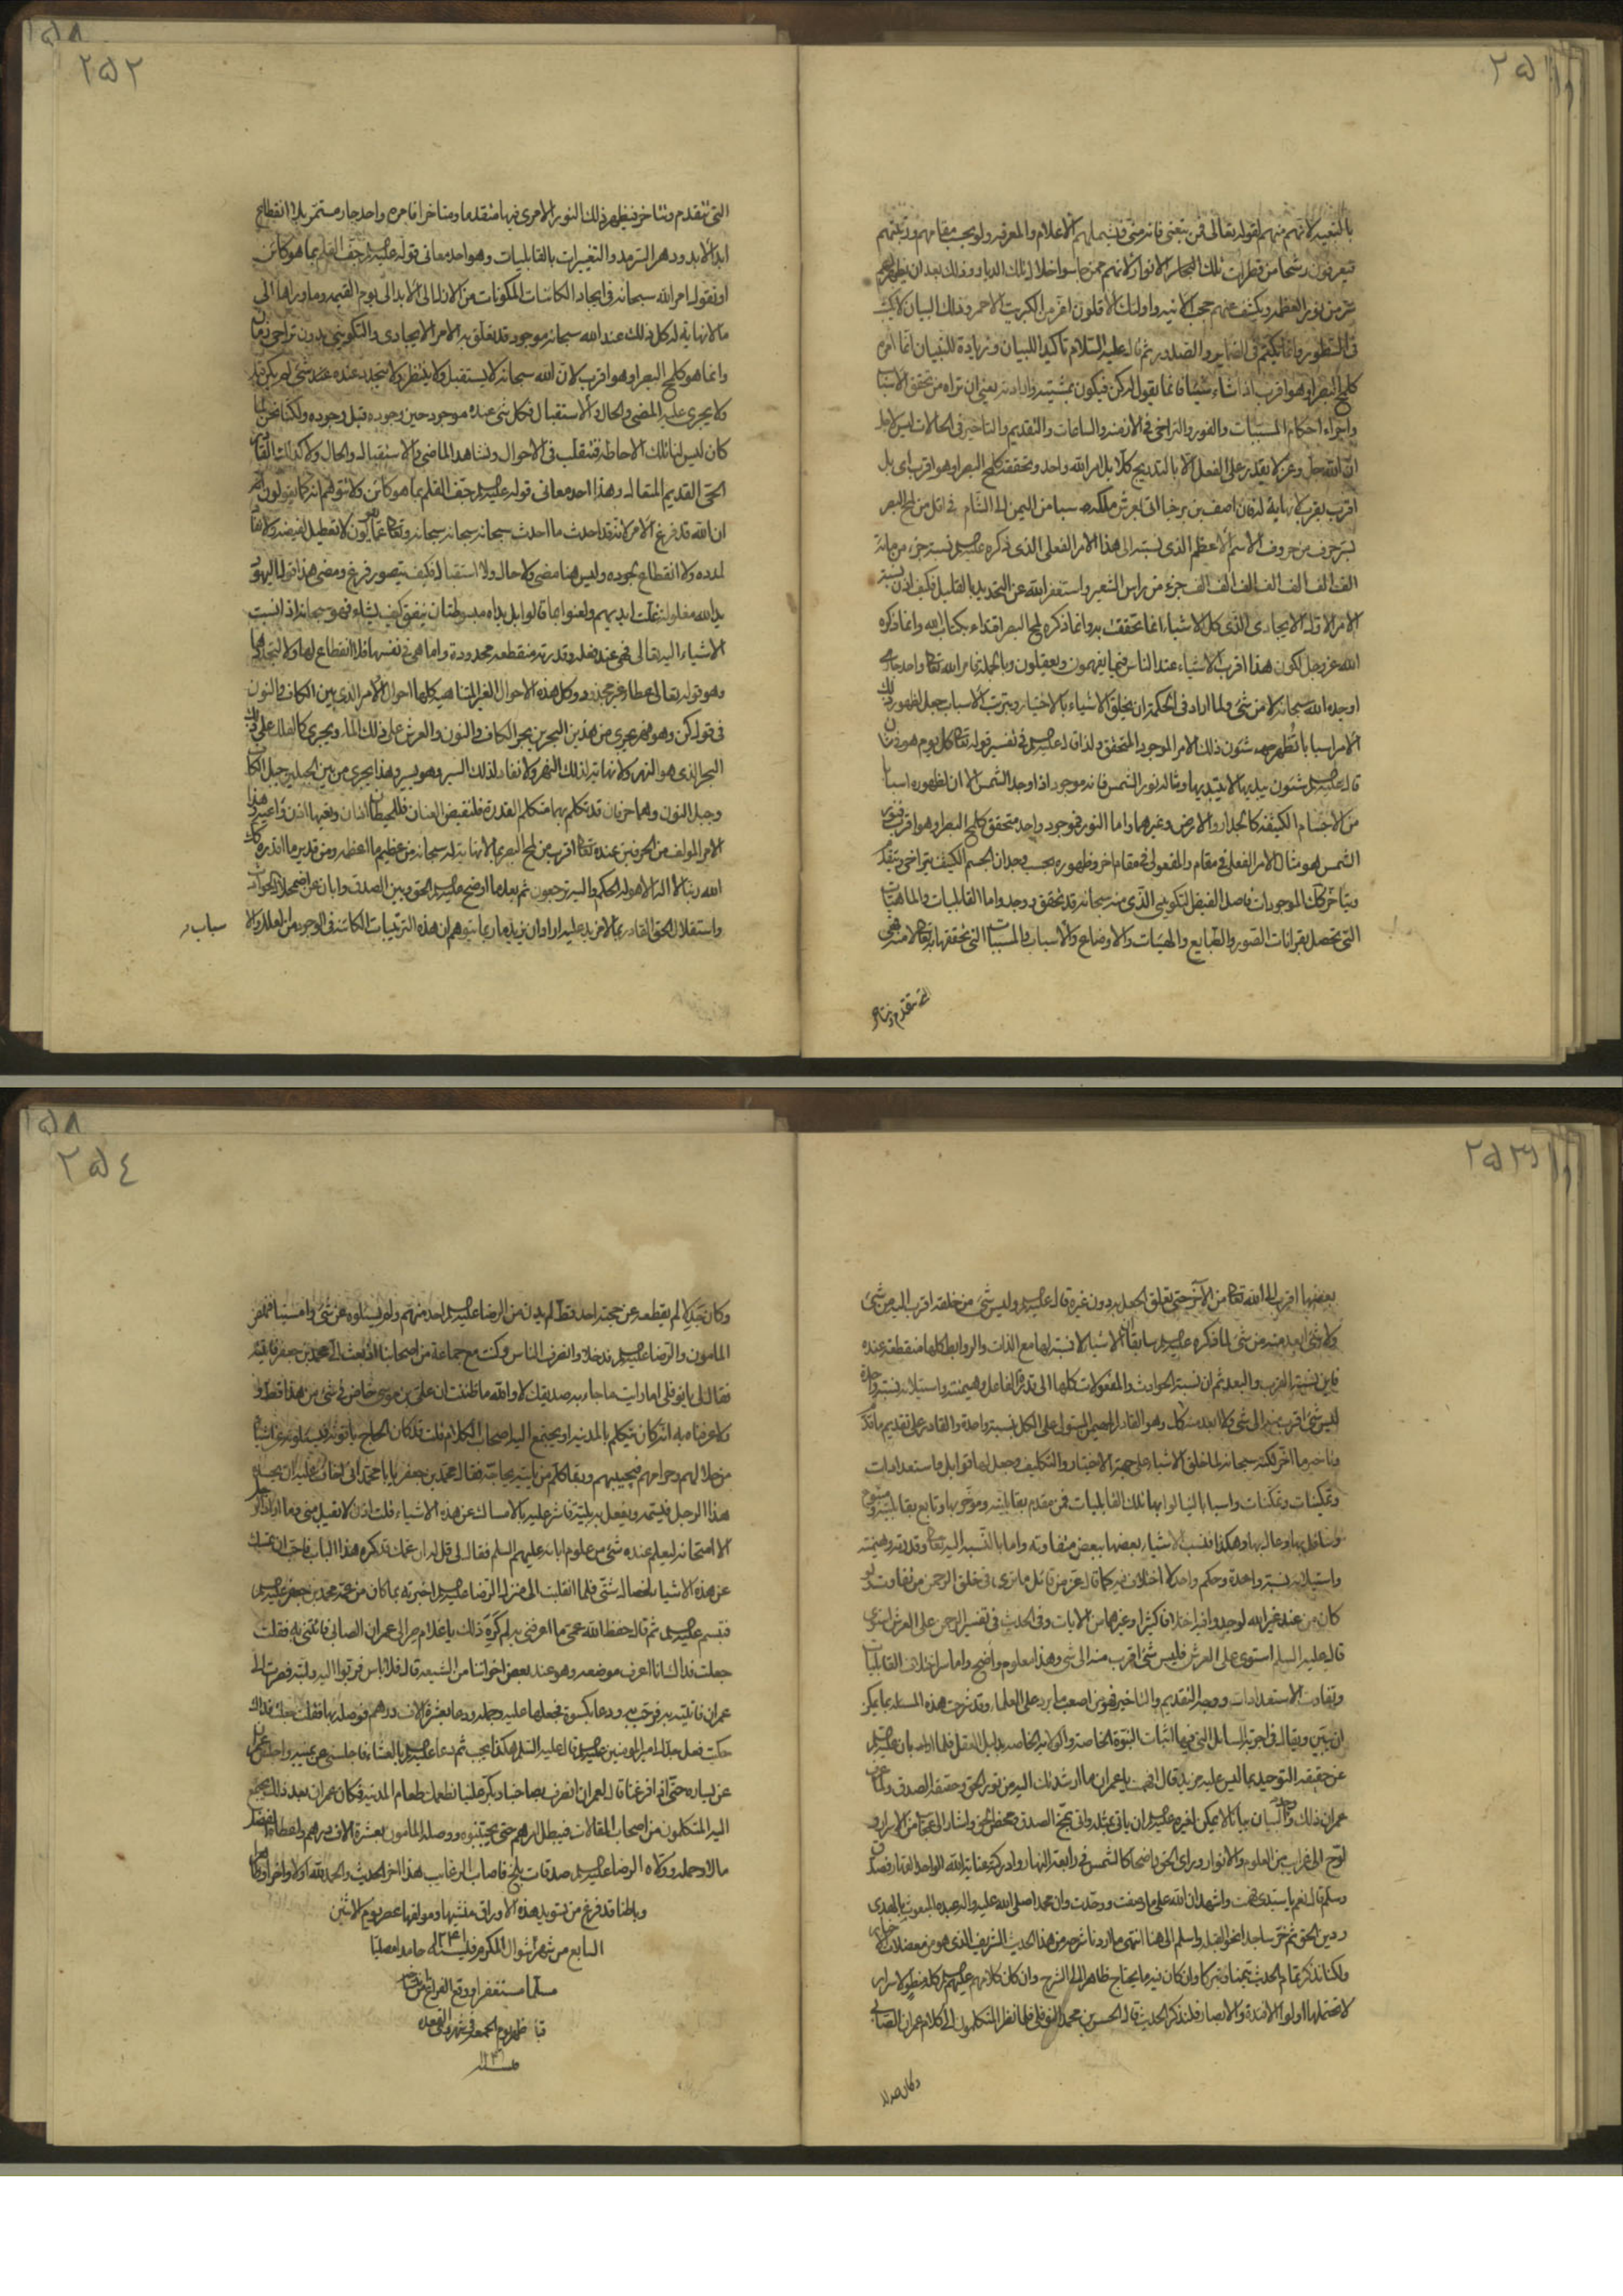 ٢٥١
بالتبعية لانهم منهم لقوله تعالى فمن تبعنى فانه منى فيشملهم الاعلام والمعرفة ولو بحسب مقامهم ورتبتهم
فيعرفون رشحا من قطرات تلك البحار الانوار لانهم ممن جاسوا خلال تلك الديار وذلك بعد ان يظهر لهم
من نور العظمة ويكشف عنهم حجب الانية واولئك الاقلون اعز من الكبريت الاحمر وذلك البيان لا يكتب
فى السطور وانما يكتم فى الضماير والصدور ثم قال عليه السلام تأكيدا للبيان وزيادة للتبيان انما امره
كلمح البصر او هو اقرب اذا شاء شيئا فانما يقول له كن فيكون بمشيته وارادته يعنى ان تراه من تحقق الاسباب
واجراء احكام المسببات والفور والتراخى فى الازمنة والساعات والتقديم والتاخير فى الحالات ليس لاجل
ان الله جل وعز لا يقدر على الفعل الا بالتدريج كلا بل امر الله واحد وتحققه كلمح البصر او هو اقرب اى بل
اقرب بقرب لا نهاية له فان اصف بن برخيا اتى بعرش ملكة سبا من اليمن الى الشام فى اقل من لمح البصر
بسر حرف من حروف الاسم الاعظم الذى نسبته الى هذا الامر الفعلى الذى ذكره عليه السلم نسبة جزء من مائة
الف الف الف الف الف الف الف جزء من راس الشعير واستغفر الله عن التحديد بالقليل فكيف اذن نسبة
الامر الاول الايجادى الذى كل الاشياء انما تحققت به وانما ذكره لمح البصر اقتداء بكتاب الله وانما ذكره
الله عز وجل لكون هذا اقرب الاشياء عند الناس فيما يفهمون ويعقلون وبالجملة فامر الله تعالى واحد
اوجده الله سبحانه لا من شىء ولما اراد فى الحكمة ان يخلق الاشياء بالاختيار ويترتب الاسباب جعل لظهور ذلك
الامر اسبابا تظهر بها شئون ذلك الامر الموجود المتحقق ولذا قال عليه السلم فى تفسير قوله تعالى كل يوم هو فى شان
قال عليه السلم شئون يبديها لا يبتديها ومثاله نور الشمس فانه موجود اذا وجد الشمس الا ان لظهوره اسبابا
من الاجسام الكثيفة كالجدار والارض وغيرهما واما النور فموجود واحد متحقق كلمح البصر او هو اقرب فنور
الشمس هو مثال الامر الفعلى فى مقام والمفعولى فى مقام اخر وظهوره بحسب وجدان الجسم الكثيف يتراخى ويتقدم
ويتاخر كك الموجودات فاصل الفيض التكوينى الذى منه سبحانه قد تحقق ووجد واما القابليات والماهيات
التى تحصل بقرانات الصور والطبايع والهيئات والاوضاع والاسباب والمسببات التى تحققها به تعالى لا منه فهى
التى تتقدم وتتاخر
٢٥٢
التى تتقدم وتتاخر فيظهر ذلك النور الامرى فيها متقدما ومتاخرا فامره واحد جار مستمر بلا انقطاع
ابد الابد ودهر السرمد والتغييرات بالقابليات وهو احد معانى قوله عليه السلم جف القلم بما هو كائن
او نقول امر الله سبحانه فى ايجاد الكائنات المكونات من الازل الى الابد الى يوم القيمة وما وراها الى
ما لا نهاية له كل ذلك عند الله سبحانه موجود قد تعلق به الامر الايجادى والتكوينى بدون تراخى زمان
وانما هو كلمح البصر او هو اقرب لان الله سبحانه لا يستقبل ولا ينتظر ولا يتجدد عنده عند شىء لم يكن قبله
ولا يجرى عليه المضى والحال والاستقبال فكل شىء عنده موجود حين وجوده قبل وجوده ولكنا نحن لما
كان ليس لنا تلك الاحاطة فنتقلب فى الاحوال ونشاهد الماضى والاستقبال والحال ولا كذلك
الحى القديم المتعال وهذا احد معانى قوله عليه السلم جف القلم بما هو كائن ولا تتوهم انه كما يقولون
ان الله قد فرغ الامر لانه قد احدث ما احدث سبحانه سبحانه سبحانه وتعالى عما يقولون لا تعطيل لفيضه ولا نفاد
لمدده ولا انقطاع لجوده وليس هنا مضى ولا حال ولا استقبال فكيف يتصور فرغ ومضى هذا قول اليهود
يد الله مغلولة غلت ايديهم ولعنوا بما قالوا بل يداه مبسوطتان ينفق كيف يشاء فهو سبحانه اذا نسبت
الاشياء اليه تعالى فهى عند فعله وقدرته منقطعة محدودة واما هى فى نفسها فلا انقطاع لها ولا
وهو قوله تعالى عطاء غير مجذوذ وكل هذه الاحوال الغير المتناهية كلها احوال الامر الذى بين الكاف والنون
فى قوله كن وهو نهر يجرى من هذين البحرين بحر الكاف والنون والعرش على ذلك الماء ويجرى كالفلك على ذلك
البحر الذى هو النهر ولا نهاية لذلك النهر ولا نفاد لذلك السير وهو يسير وهذا يجرى من بين الجبلين جبل الكاف
وجبل النون وهما حرفان قد تكلم بهما متكلم القدرة فلنقبض العنان فللحيطان اذان وتعيها اذن واعية هذا
الامر المولف من الحرفين عنده تعالى اقرب من لمح البصر بما لا نهاية له سبحانه من عظيم ما اعظمه ومن قدير ما اقدره ذلك
الله ربنا لا اله الا هو له الحكم واليه ترجعون ثم بعد ما اوضح عليه السلم الحق وبين الصدق وابان عن اضمحلال
واستقلال الحق القادر بما لا مزيد عليه اراد ان يزيد ما ربما يتوهم ان هذه الترتيبات الكائنة فى الوجود من العلل والاسباب
٢٥٣
بعضها اقرب الى الله تعالى من الآخر حتى تعلق الجعل به دون غيره قال عليه السلم وليس شىء من خلقه اقرب اليه من شىء
ولا شىء ابعد منه من شىء لما ذكره عليه السلم سابقا ان الاشياء لا نسبة لها مع الذات والروابط كلها منقطعة عنده
فاين نسبة القرب والبعد ثم ان نسبة الحوادث والمفعولات كلها الى قدرة الفاعل وهيمنته واستيلائه نسبة واحدة
ليس شىء اقرب منه الى شىء ولا ابعد منه كل وهو القادر المهيمن المستولى على الكل نسبة واحدة والقادر على تقديم ما قدم
وتاخير ما اخر لكنه سبحانه لما خلق الاشياء على جهة الاختيار والتكليف وجعل لها قوابل واستعدادات
وتمكينات وتمكنات واسبابا لينالوا بها تلك القابليات فمن مقدم بقابليته وموخر بها وتابع بقابليته ومتبوع
وسافل بها وعال بها وهكذا فنسب الاشياء بعضها ببعض متفاوته واما بالنسبة اليه تعالى وقدرته وهيمنته
واستيلائه نسبة واحدة وحكم واحد لا اختلاف فيه كما قال عز من قائل ما ترى فى خلق الرحمن من تفاوت ولو
كان من عند غير الله لوجدوا فيه اختلافا كثيرا وغيرهما من الايات وفى الحديث فى تفسير الرحمن على العرش استوى
قال عليه السلم استوى على العرش فليس شىء اقرب منه الى شىء وهذا معلوم واضح واما سر اختلاف القابليات
وتفاوت الاستعدادات ووجه التقديم والتاخير فهو من اصعب ما يرد على العلماء وقد شرحت هذه المسئلة بما يمكن
ان يتبين ويقال فى اجوبة المسائل التى فيها اثبات النبوة الخاصة والولاية الخاصة بدليل العقل فلما ابان عليه السلم
عن حقيقة التوحيد بما ليس عليه مزيد قال افهمت يا عمران ما ارشدناك اليه من نور الحق وحقيقة الصدق ولما عرف
عمران ذلك وان البيان بيانا لا يمكن لغيره عليه السلم ان ياتى بمثله واتى بمخ الصدق ومحض الحق واشار الى من الاسرار و
لوح الى غرايب من العلوم والانوار وراى الحق واضحا كالشمس فى رابعة النهار وادركته عناية الله الواحد القهار فصدق
وسلم قال نعم يا سيدى فهمت واشهد ان الله على ما وصفت ووحدت وان محمدا صلى الله عليه واله عبده المبعوث بالهدى
ودين الحق ثم خر ساجدا نحو القبلة واسلم الى هنا انتهى ما اردنا شرحه من هذا الحديث الشريف الذى هو من معضلات
ولكنا نذكر تمام الحديث تيمنا وتبركا وان كان فيه ما يحتاج ظاهرا الى الشرح وان كان كلامهم عليهم السلم كله اسرار
لا يحتملها الا اولوا الافئدة والابصار فلنذكر الحديث قال الحسن بن محمد النوفلى فلما نظر المتكلمون الى كلام عمران الصابى
وكان جدلا
٢٥٤
وكان جدلا لم يقطعه عن حجته احد قط لم يدن من الرضا عليه السلم احد منهم ولم يسئلوه عن شىء وامسينا فنهض
المامون والرضا عليه السلم فدخلا وانصرف الناس وكنت مع جماعة من اصحابنا اذ بعث الى محمد بن جعفر فاتيته
فقال لى يا نوفلى اما رايت ما جاء به صديقك لا والله ما ظننت ان على بن موسى خاض فى شىء من هذا قط و
لا عرفناه به انه كان يتكلم بالمدينة او يجتمع اليه اصحاب الكلام قلت قد كان الحاج ياتونه فيسئلونه عن اشياء
من حلالهم وحرامهم فيجيبهم وربما كلم من ياتيه يحاجه فقال محمد بن جعفر يا با محمد انى اخاف عليه ان يحسده
هذا الرجل فيسمه او يفعل به بلية فاشر عليه بالامساك عن هذه الاشياء قلت اذن لا يقبل منى وما اراد الرجل
الا امتحانه ليعلم عنده شىء من علوم ابائه عليهم السلم فقال لى قل له ان عمك قد كره هذا الباب فاحب ان تمسك
عن هذه الاشياء لخصال شتى فلما انقلبت الى منزل الرضا عليه السلم اخبرته بما كان من عمه محمد بن جعفر عليه السلم
فتبسم عليه السلم ثم قال حفظ الله عمى ما اعرفنى به لم كره ذلك يا غلام صر الى عمران الصابى فائتنى به فقلت
جعلت فداك انا اعرف موضعه وهو عند بعض اخواننا من الشيعة قال فلا باس قربوا اليه دابة فصرت الى
عمران فاتيته به فرحب به ودعا بكسوة فخلعها عليه وحمله ودعا بعشرة الاف درهم فوصله بها فقلت جعلت فداك
حكيت فعل جدك امير المومنين عليه السلم قال عليه السلم هكذا يجب ثم دعا عليه السلم بالعشاء فاجلسنى عن يمينه واجلس عمران
عن يساره حتى اذا فرغنا قال لعمران انصرف مصاحبا وبكر علينا نطعمك طعام المدينة فكان عمران بعد ذلك يجتمع
اليه المتكلمون من اصحاب المقالات فيبطل امرهم حتى اجتنبوه ووصله المامون بعشرة الاف درهم واعطاه الفضل
مالا وحمله وولاه الرضا عليه السلم صدقات بلخ فاصاب الرغايب هذا اخر الحديث والحمد لله اولا واخرا وظاهرا
وباطنا قد فرغ من تسويد هذه الاوراق منشيها ومولفها عصر يوم الاثنين
السابع من شهر شوال المكرم فى سنة ١٢٣٤ حامدا مصليا
مسلما مستغفرا ووقع الفراغ من
ظهر يوم الجمعة فى شهر ذى القعدة